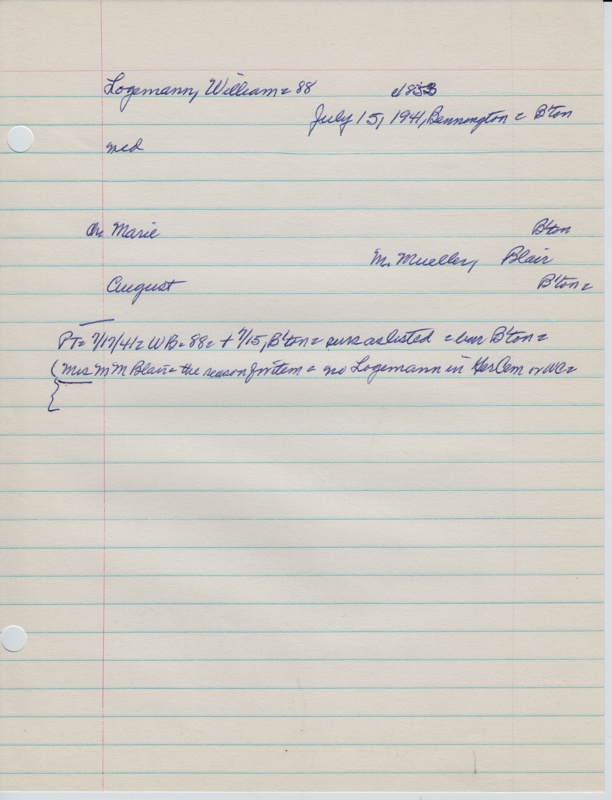 Logemann, William = 88 c1853
July 15, 1941, Bennington = B'ton
wed
ch Marie B'ton
M. Mueller, Blair
August B'ton =
PT = 7/17/41 = WB = 88 = + 7/15, B'ton = surs as listed = bur B'ton =
(Mrs M M Blair = the reason for item = no Logemann in Ger Cem or WC =